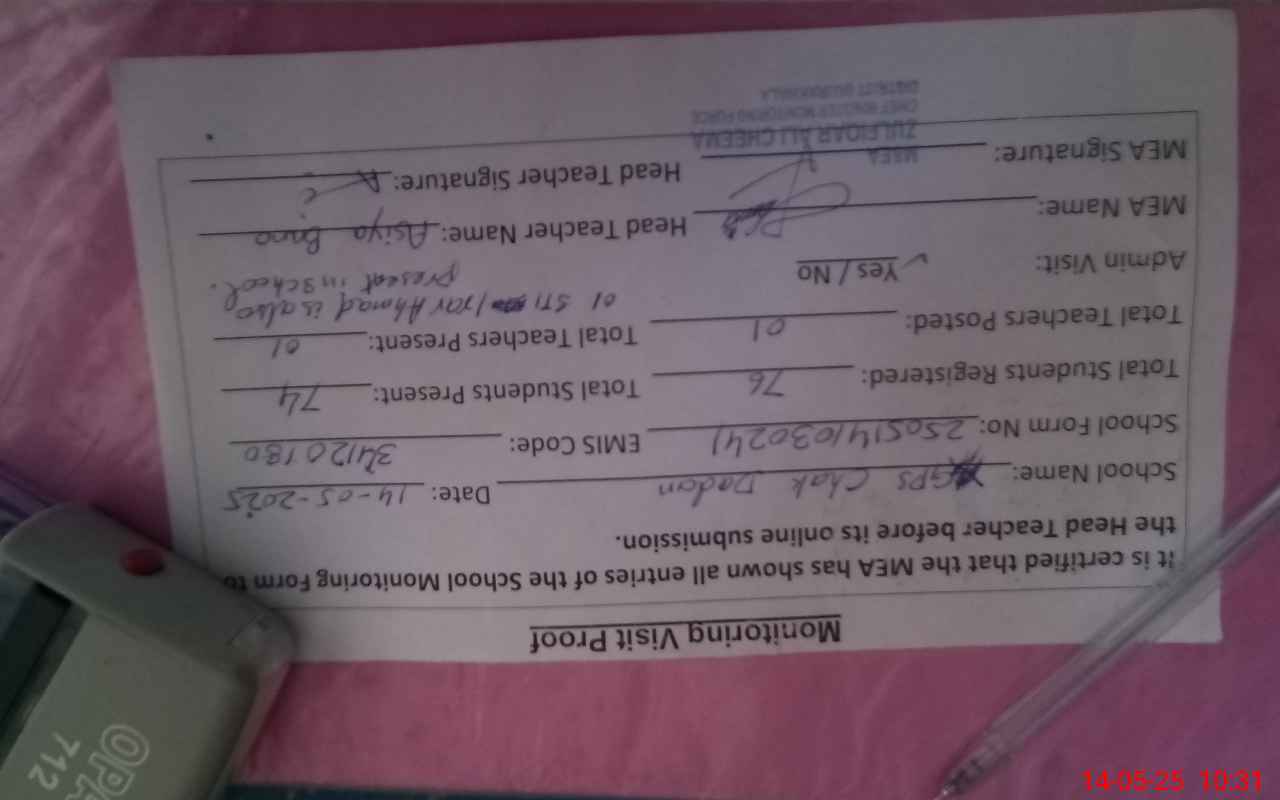 Monitoring Visit Proof
It is certified that the MEA has shown all entries of the School Monitoring Form to
the Head Teacher before its online submission.
School Name: GPS Chak Dadan Date: 14-05-2025
School Form No: 2505141030241 EMIS Code: 34120180
Total Students Registered: 76 Total Students Present: 74
Total Teachers Posted: 01 Total Teachers Present: 01
01 STI Ahmad is also
present in school.
Admin Visit: Yes / No
MEA Name: Head Teacher Name: Asiya Bano
MEA Signature: Head Teacher Signature:
MSEA
ZULFIQAR ALI CHEEMA
CHIEF MINISTER MONITORING FORCE
DISTRICT GUJRANWALA
712
14-05-25 10:31